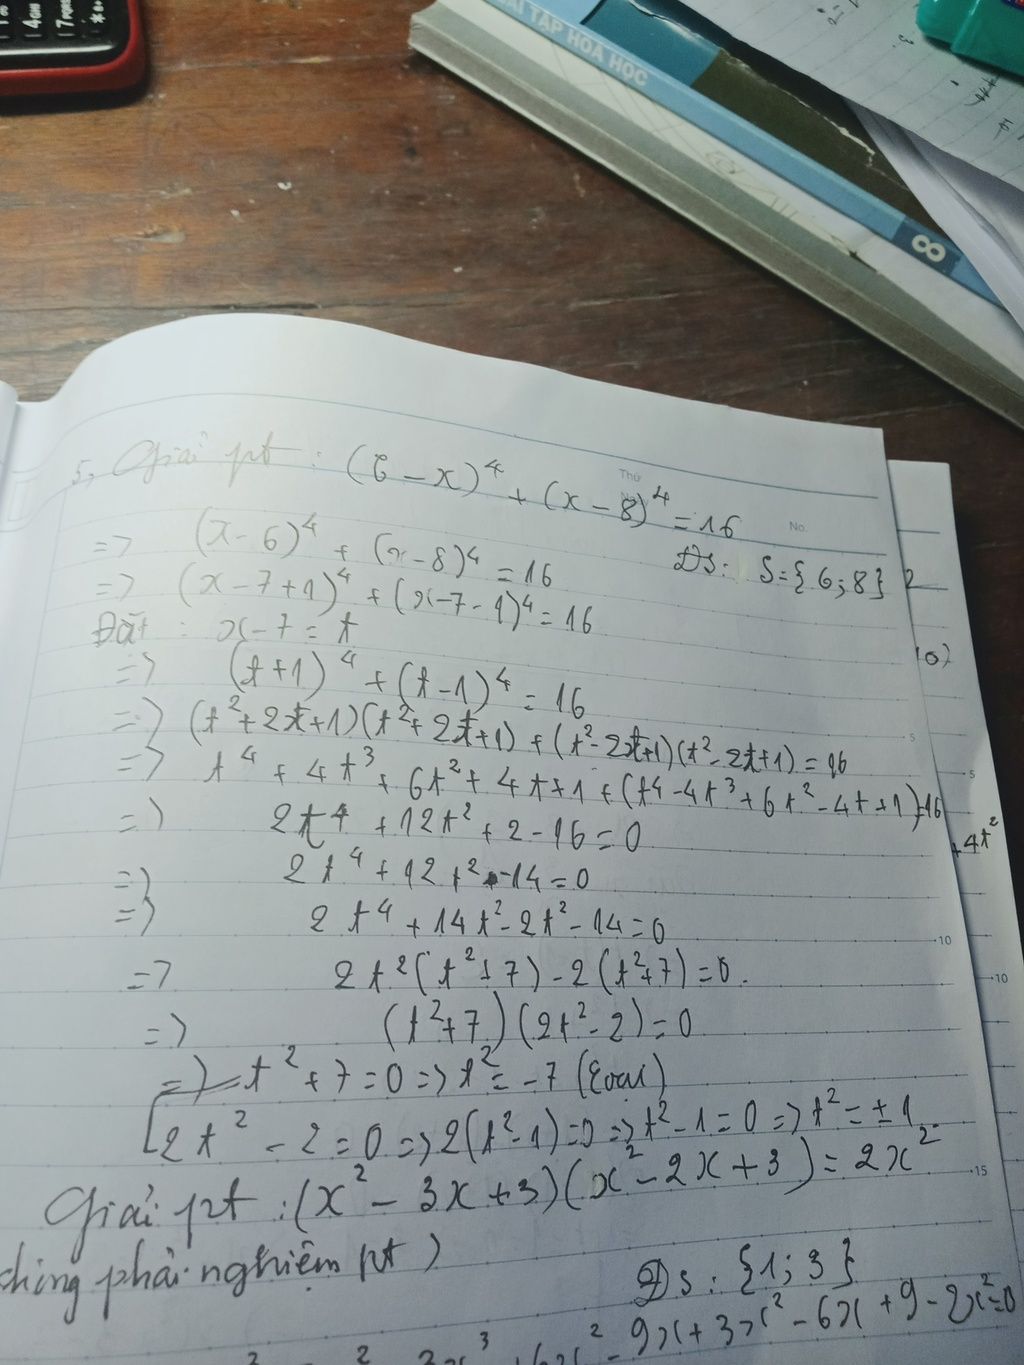 BÀI TẬP HÓA HỌC
8
Thứ
No.
5, Giải pt : (6 - x)⁴ + (x - 8)⁴ = 16
=> (x - 6)⁴ + (x - 8)⁴ = 16
ĐS: S = {6; 8}
=> (x - 7 + 1)⁴ + (x - 7 - 1)⁴ = 16
Đặt : x - 7 = t
=> (t + 1)⁴ + (t - 1)⁴ = 16
=> (t² + 2t + 1)(t² + 2t + 1) + (t² - 2t + 1)(t² - 2t + 1) = 16
=> t⁴ + 4t³ + 6t² + 4t + 1 + (t⁴ - 4t³ + 6t² - 4t + 1) = 16
=> 2t⁴ + 12t² + 2 - 16 = 0
=> 2t⁴ + 12t² - 14 = 0
=> 2t⁴ + 14t² - 2t² - 14 = 0
=> 2t²(t² + 7) - 2(t² + 7) = 0.
=> (t² + 7)(2t² - 2) = 0
=> t² + 7 = 0 => t² = -7 (Loại)
2t² - 2 = 0 => 2(t² - 1) = 0 => t² - 1 = 0 => t² = ± 1
Giải pt : (x² - 3x + 3)(x² - 2x + 3) = 2x²
phải nghiệm pt )
ĐS : {1; 3}
- 9x + 3x² - 6x + 9 - 2x² = 0
2
10)
+ 4t²
5
10
15
5
10